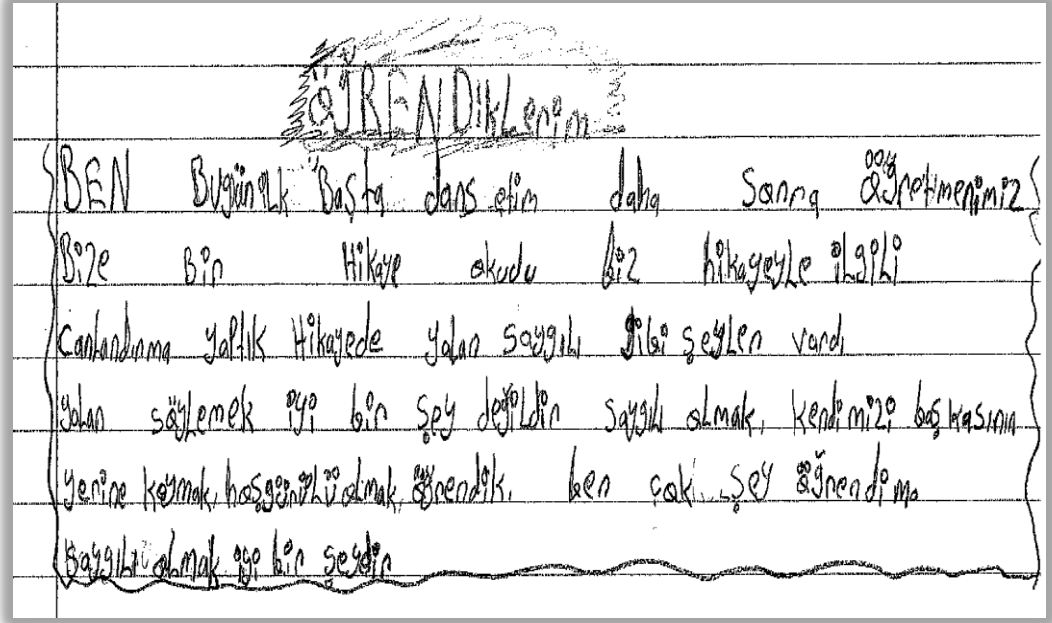 ÖĞRENDiKLerim
BEN Bugün iLk Başta dans etim daha Sonra öğretmenimiz
Bize Bir Hikaye okudu biz hikayeyLe iLgiLi
CanLandırma yaptık Hikayede yalan saygıLı gibi şeyLer vardı
yaLan söyLemek iyi bir şey değiLdir saygıLı olmak, kendimizi başkasının
yerine koymak, hoşgörüLü olmak, öğrendik. ben çok şey öğrendim.
saygıLı oLmak iyi bir şeydir